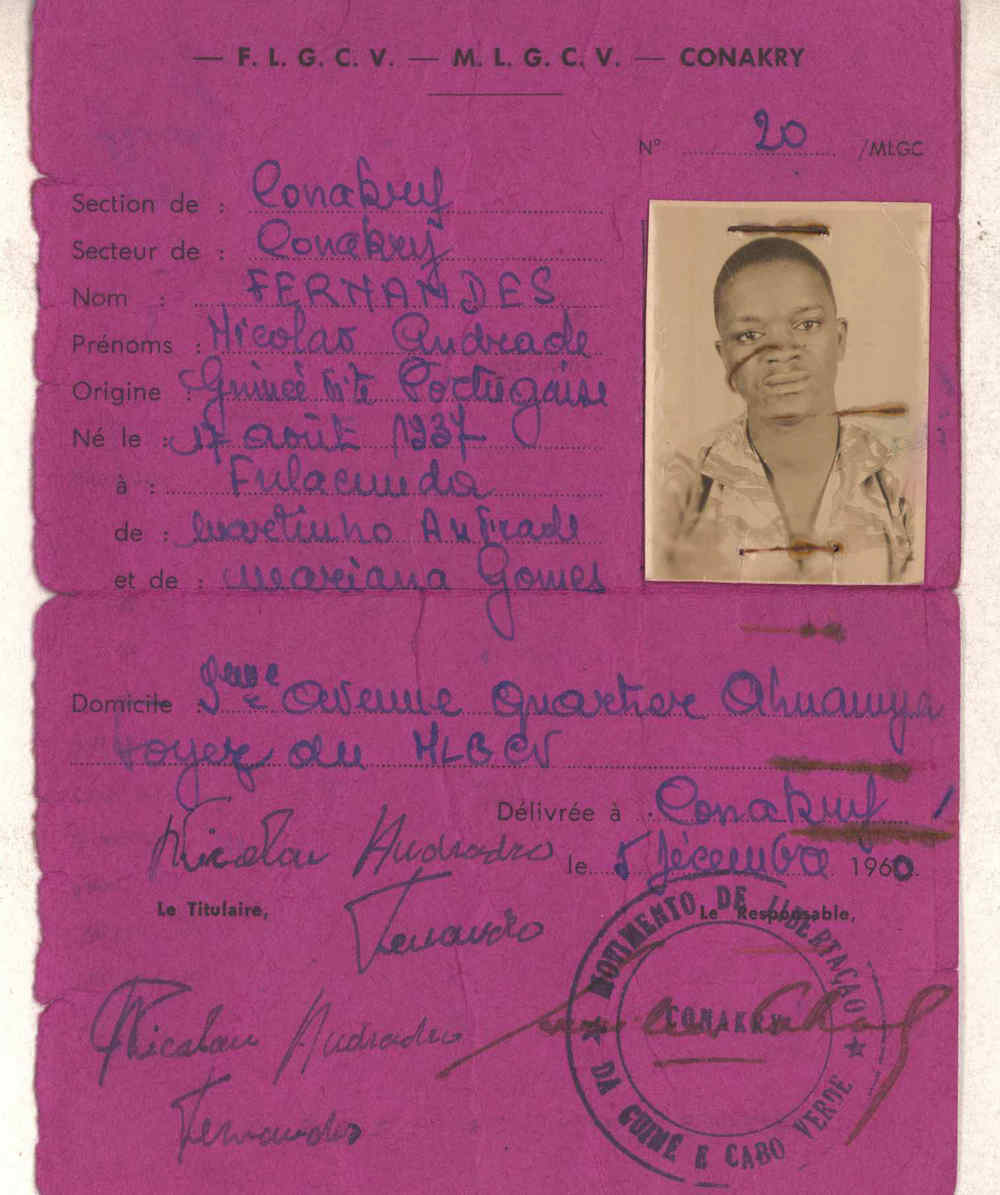 — F. L. G. C. V. — M. L. G. C. V. — CONAKRY
N° 20 /MLGC
Section de : Conakry
Secteur de : Conakry
Nom : FERNANDES
Prénoms : Nicolao Andrade
Origine : Guinée Portugaise
Né le : 17 août 1937
à : Fulacunda
de : Martinho Andrade
et de : Mariana Gomes
Domicile : avenue quartier
Foyer du MLGCV
Délivrée à : Conakry
le 5 décembre 1960.
Nicolau Andrade
Le Titulaire,
Le Responsable,
Fernandes
MOVIMENTO DE LIBERTAÇÃO
CONAKRY
DA GUINÉ E CABO VERDE
Nicolau Andrade
Fernandes